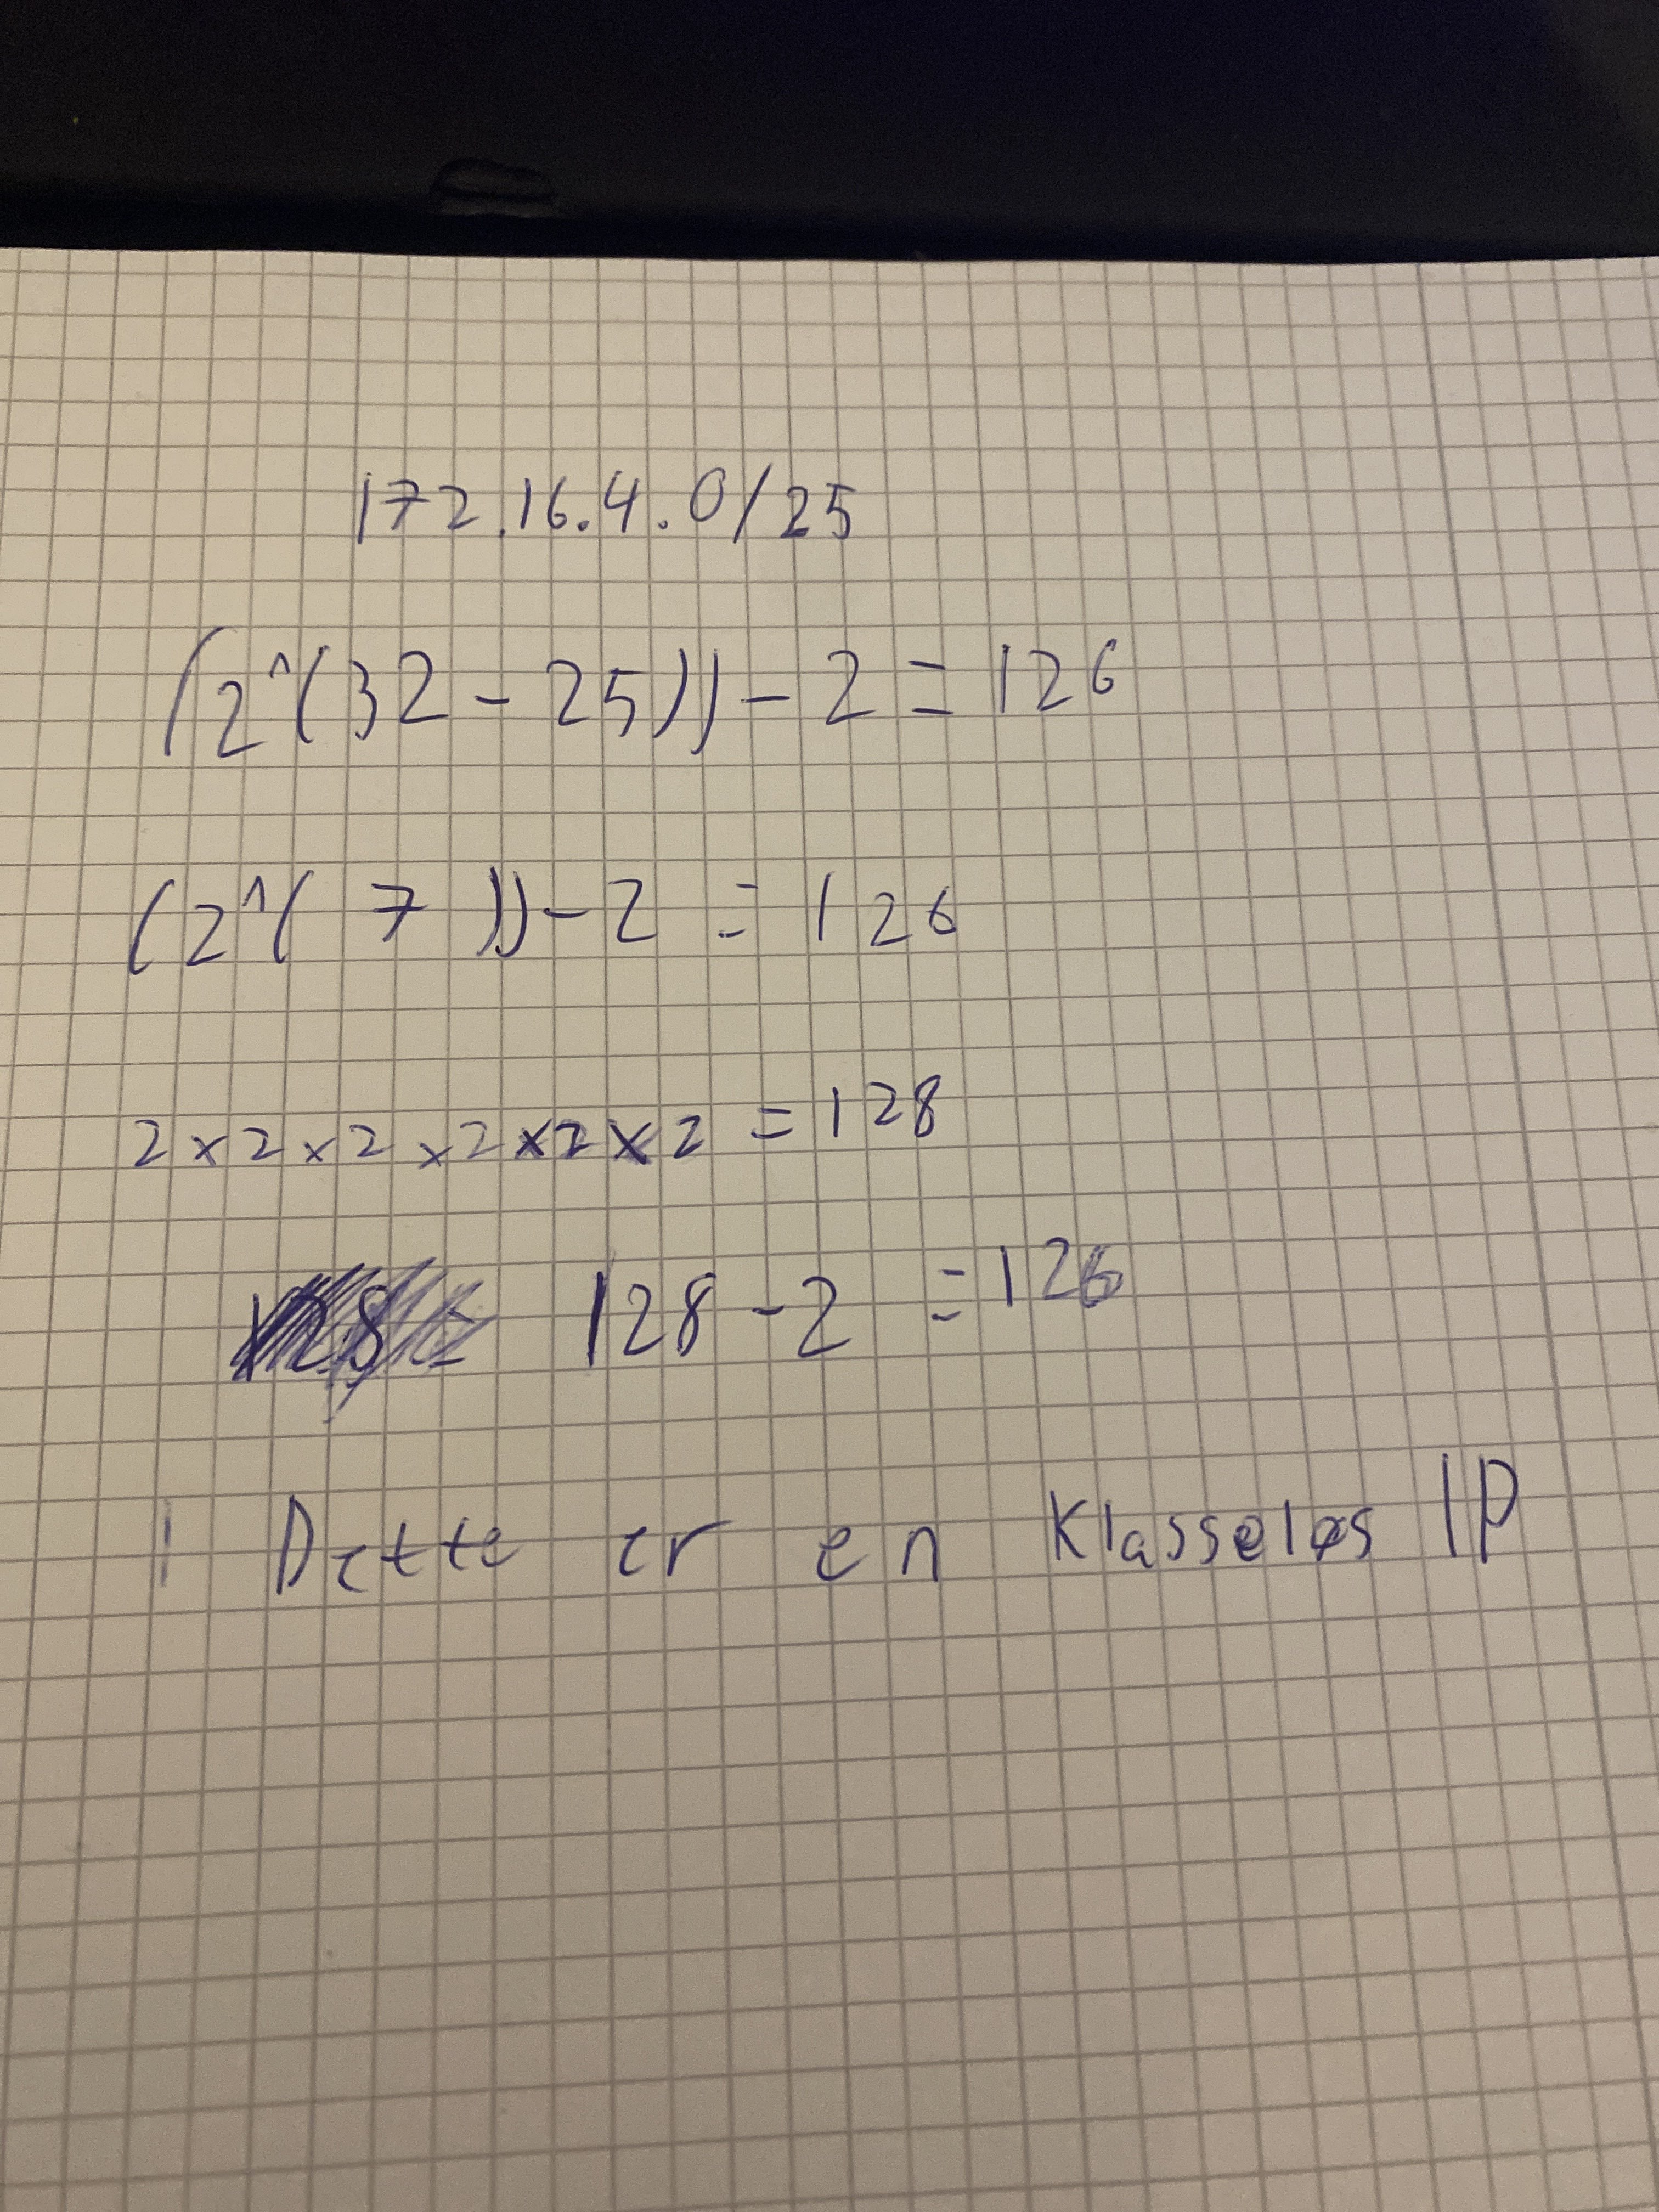 172.16.4.0/25
(2^(32-25))-2=126
(2^(7))-2=126
2x2x2x2x2x2=128
128-2=126
Dette er en Klasseløs IP